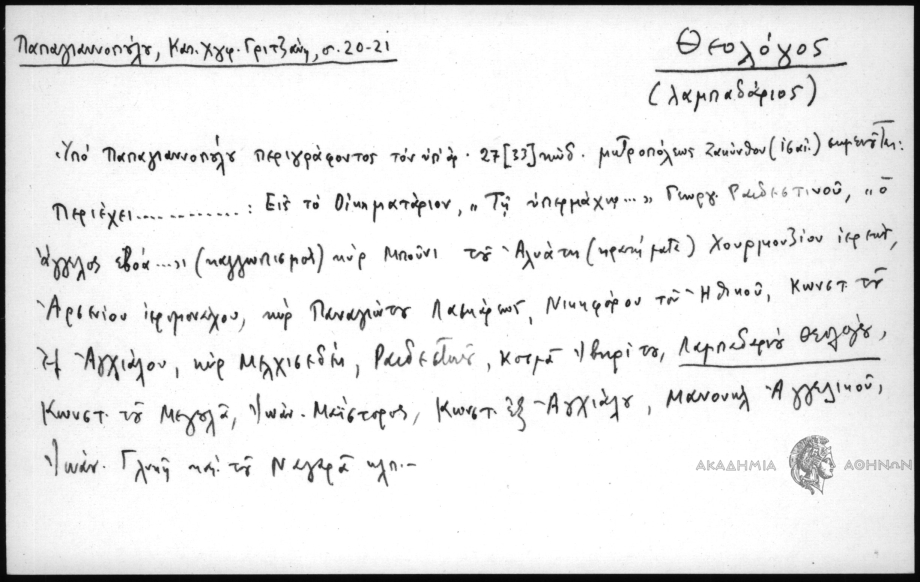 Παπαγιαννοπούλου, Κατ. Χγφ. Γριτζάνη, σ. 20-21
Θεολόγος
(λαμπαδάριος)
Ὑπό Παπαγιαννοπούλου περιγράφοντος τόν ὑπ' ἀρ. 27[33] κώδ. μητροπόλεως Ζακύνθου (ἰσαϊ.) σημειοῦται:
Περιέχει............: Εἰς τό Οἰκηματάριον, „Τῇ ὑπερμάχῳ...” Γεωργ. Ραιδεστινοῦ, „ὁ
ἄγγελος ἐβόα...” (καλλωπισμός) κύρ Μπούνη τοῦ Ἀλυάτη (κρατήματα) Χουρμουζίου ἱερέως,
Ἀρσενίου ἱερομονάχου, κύρ Παναγιώτου Λασκάρεως, Νικηφόρου τοῦ Ἠθικοῦ, Κωνστ. τοῦ
ἐξ Ἀγχιάλου, κύρ Μελχισεδέκ, Ραιδεστηνοῦ, Κοσμᾶ Ἰβηρίτου, Λαμπαδαρίου Θεολόγου,
Κωνστ. τοῦ Μαγουλᾶ, Ἰωάν. Μαΐστορος, Κωνστ. ἐξ Ἀγχιάλου, Μανουήλ Ἀγγελικοῦ,
Ἰωάν. Γλυκῆ καί τοῦ Ναγαρᾶ κλπ.–
ΑΚΑΔΗΜΙΑ ΑΘΗΝΩΝ